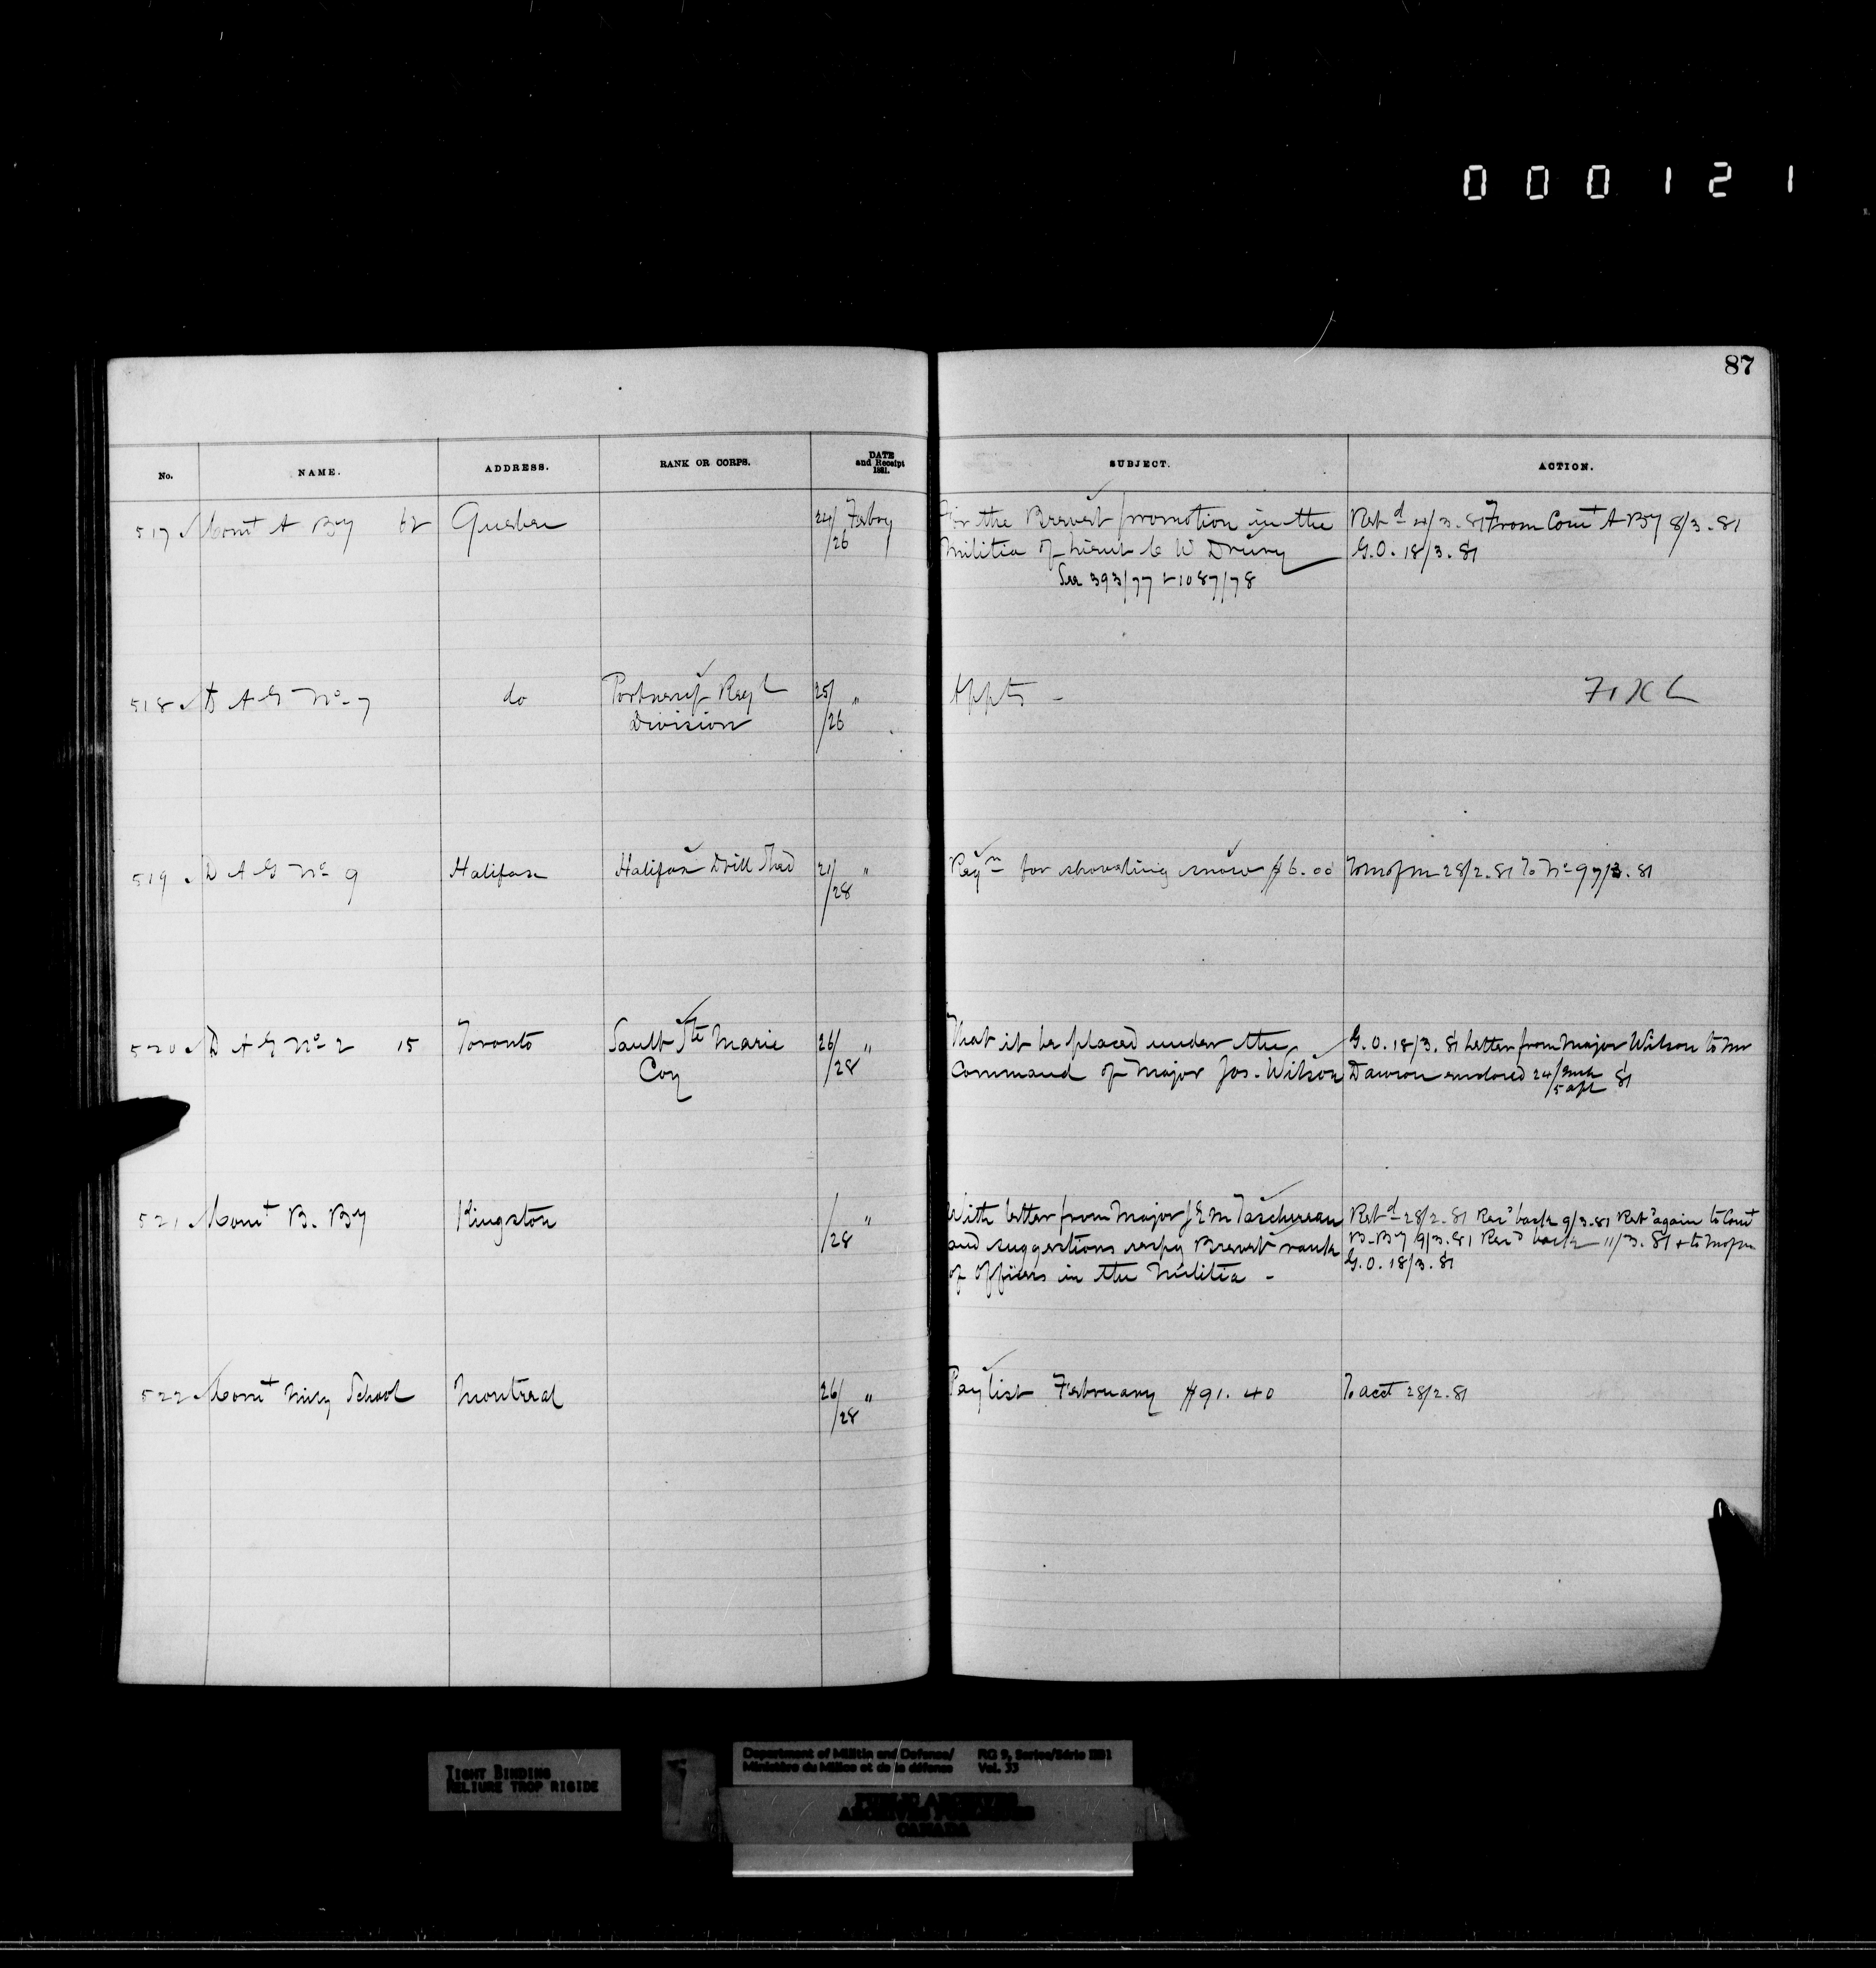 000121
87
No. NAME. ADDRESS. RANK OR CORPS. DATE and Receipt 1881. SUBJECT. ACTION.
517 Comt A By 62 Quebec 24/26 Febry For the Brevet promotion in the Retd 4/3.81 From Comt A By 8/3.81
Militia of Lieut C W Drury G.O. 18/3.81
See 393/77 & 1087/78
518 D A G No 7 do Portneuf Regl 25/26 " Appts -
Division
519 D A G No 9 Halifax Halifax Drill Shed 21/28 " Reqn for shoveling snow $6.00 To M of M 28/2.81 To No 9 7/3.81
520 D A G No 2 15 Toronto Sault Ste Marie 26/28 " That it be placed under the G.O. 18/3.81 Letter from Major Wilson to Mr
Coy Command of Major Jos. Wilson Dawson enclosed 24/Mch 5 Apl 81
521 Comt B. By Kingston /28 " With letter from Major J E M Taschereau Retd 28/2.81 Recd back 9/3.81 Retd again to Comt
and suggestions respg Brevet rank B. By 9/3.81 Recd back 11/3.81 & to M of M
of Officers in the Militia - G.O. 18/3.81
522 Comt Mily School Montreal 26/28 " Pay list February $91.40 To acct 28/2.81
TIGHT BINDING
RELIURE TROP RIGIDE
Department of Militia and Defence/ RG 9, Series/Série IIB1
Ministère du Milice et de la défense Vol. 33
PUBLIC ARCHIVES
ARCHIVES PUBLIQUES
CANADA